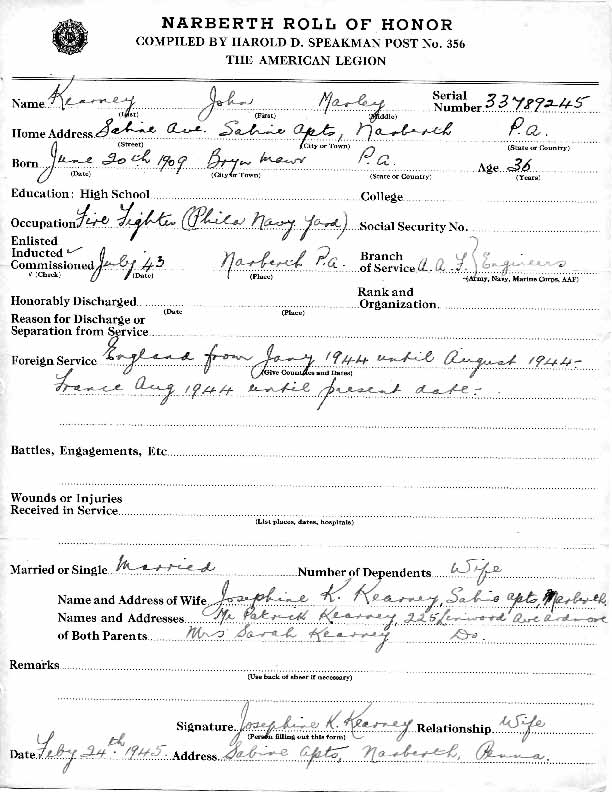 NARBERTH ROLL OF HONOR
COMPILED BY HAROLD D. SPEAKMAN POST No. 356
THE AMERICAN LEGION
Name Kearney John Marley Serial Number 33789245
(Last) (First) (Middle)
Home Address Sabine Ave. Sabine Apts, Narberth P.a.
(Street) (City or Town) (State or Country)
Born June 20th 1909 Bryn Mawr P.a. Age 36
(Date) (City or Town) (State or Country) (Years)
Education: High School College
Occupation Fire Fighter (Phila Navy Yard) Social Security No.
Enlisted
Inducted ✓
Commissioned July '43 Narberth P.a. Branch of Service A.A.F} Engineers
(Check) (Date) (Place) (Army, Navy, Marine Corps, AAF)
Honorably Discharged Rank and Organization
(Date (Place)
Reason for Discharge or
Separation from Service
Foreign Service England from Jany 1944 until August 1944-
(Give Countries and Dates)
France Aug 1944 until present date-
Battles, Engagements, Etc
Wounds or Injuries
Received in Service
(List places, dates, hospitals)
Married or Single Married Number of Dependents Wife
Name and Address of Wife Josephine K. Kearney, Apts, Narberth
Names and Addresses Mr Patrick Kearney, 225 Linwood Ave Ardmore
of Both Parents Mrs Sarah Kearney Do.
Remarks
(Use back of sheet if necessary)
Signature Josephine K. Kearney Relationship Wife
(Person filling out this form)
Date Feby 24th 1945 Address Sabine Apts, Narberth, Penna.